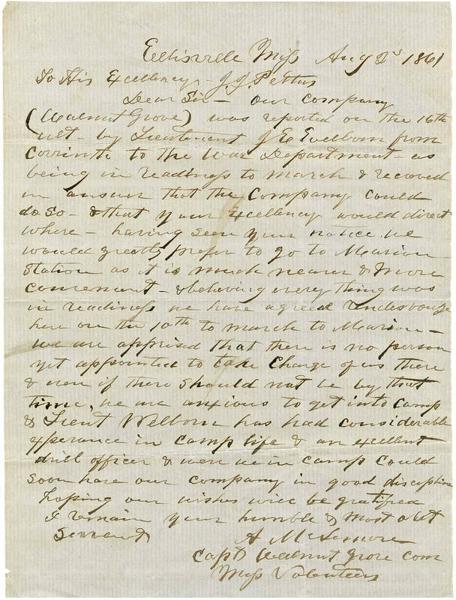 Ellisville Miss Aug 2d 1861
To His Excellency - J J Pettus
Dear Sir - our company
(Walnut Grove) was reported on the 16th
ult by Lieutenant J E Welborn from
Corinth to the War Department - as
being in readings to march & received
in answer that the Company could
do so - & that your excellency would direct
where - having seen your notice we
would greatly prefer to go to Marion
Station as it is much nearer & more
convenient - & believing every thing was
in readings we have agreed
here on the 10th to march to Marion -
we are apprised that there is no person
yet appointed to take charge of us there
& even if there should not be by that
time, we are anxious to get into camp
& Lieut Welborn has had considerable
experance in camp life & an excellent
drill officer & were we in camp could
soon have our company in good discipline
Hoping our wishes will be gratified
I remain your humble & most obt
Servant A McLemore
Capt Walnut Grove Com
Miss Volunteers